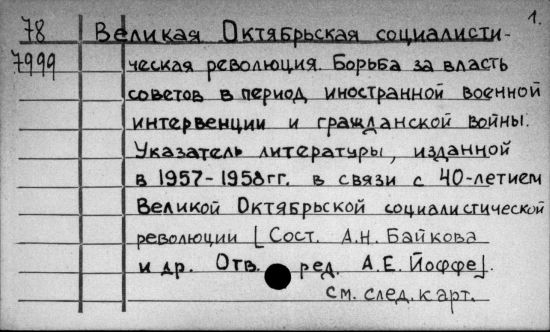 1.
78 Великая Октябрьская социалисти-
7999 ческая революция. Борьба за власть
советов в период иностранной военной
интервенции и гражданской войны.
Указатель литературы, изданной
в 1957-1958гг. в связи с 40-летием
Великой Октябрьской социалистической
революции [Сост. А.Н. Байкова
и др. Отв. ред. А.Е. Йоффе].
см. след. карт.